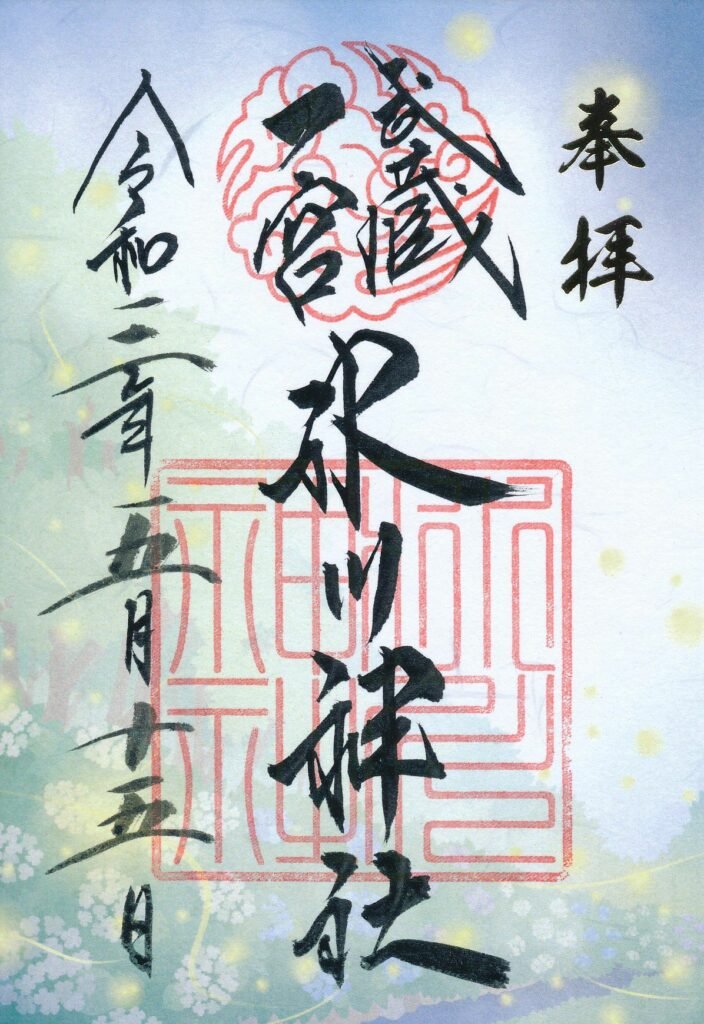 奉拝
武蔵
一宮
氷川神社
令和三年五月十五日
氷川
神社